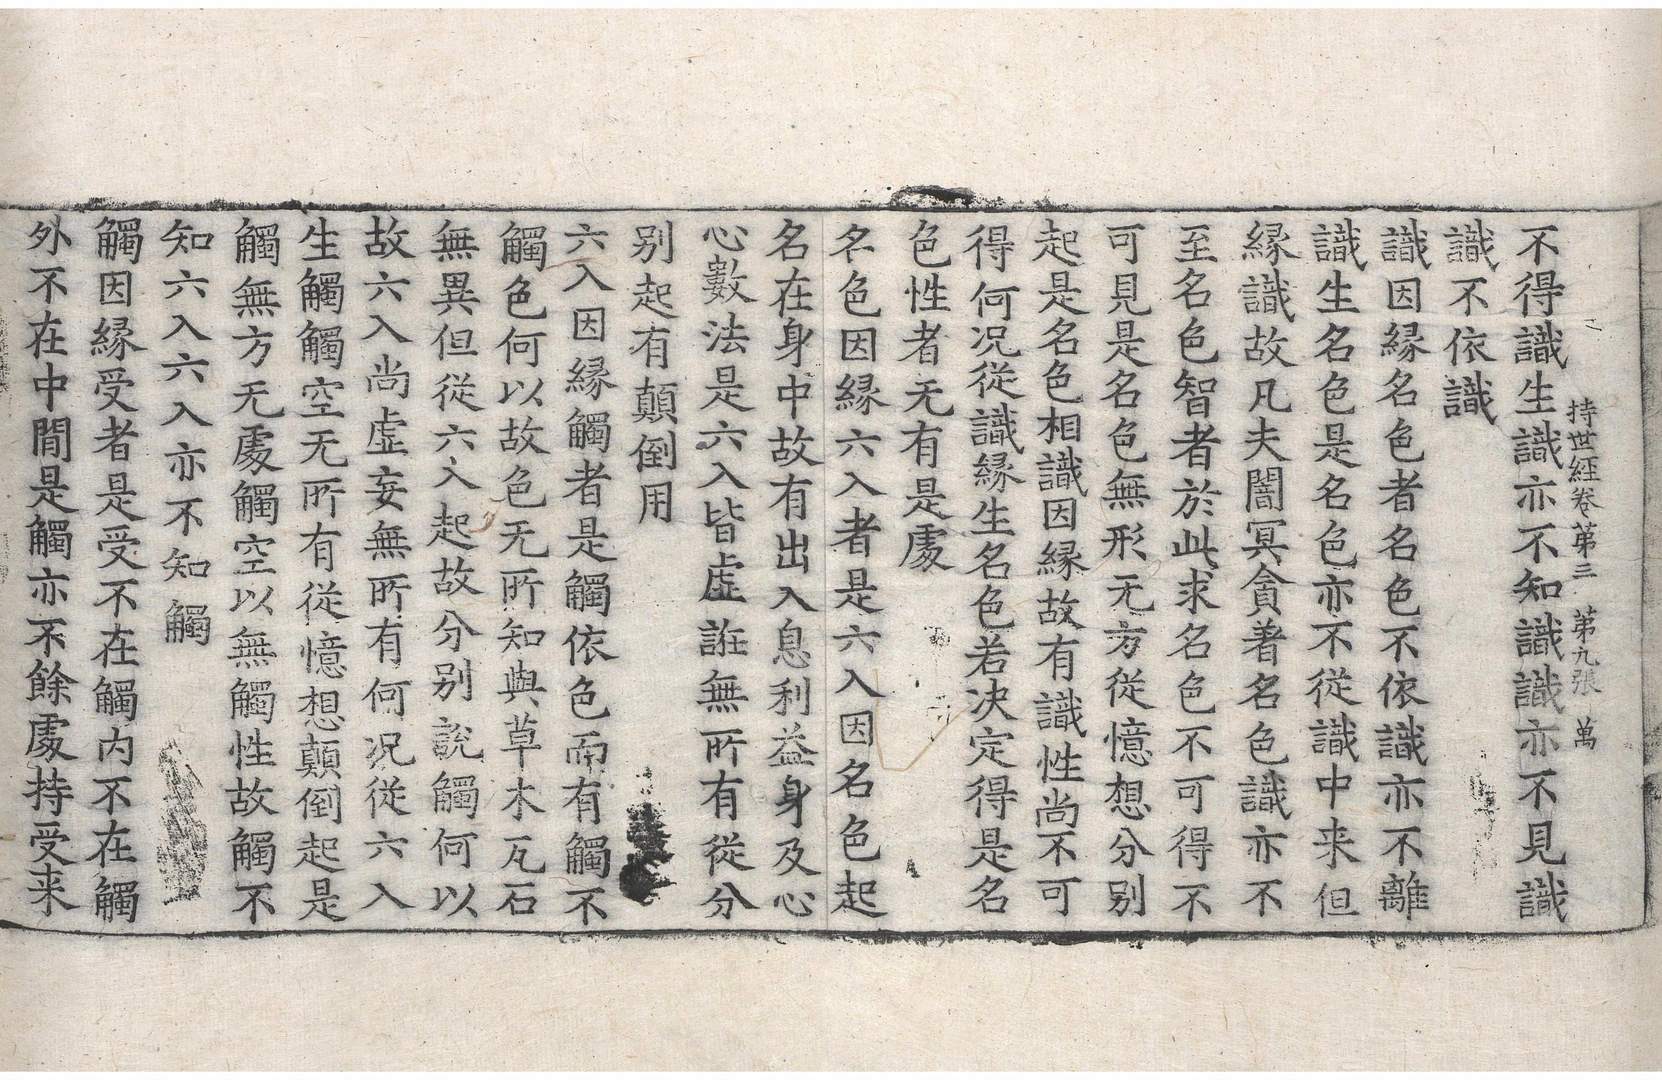 持世經卷苐三　苐九張　萬
不得識生識亦不知識識亦不見識
識不依識
識因縁名色者名色不依識亦不離
識生名色是名色亦不從識中来但
縁識故凡夫闇冥貪著名色識亦不
至名色智者於此求名色不可得不
可見是名色無形无方從憶想分别
起是名色相識因縁故有識性尚不可
得何况從識縁生名色若决定得是名
色性者无有是處
名色因縁六入者是六入因名色起
名在身中故有出入息利益身及心
心數法是六入皆虚誑無所有從分
别起有顛倒用
六入因縁觸者是觸依色而有觸不
觸色何以故色无所知與草木瓦石
無異但從六入起故分别說觸何以
故六入尚虚妄無所有何况從六入
生觸觸空无所有從憶想顛倒起是
觸無方无處觸空以無觸性故觸不
知六入六入亦不知觸
觸因縁受者是受不在觸内不在觸
外不在中間是觸亦不餘處持受来